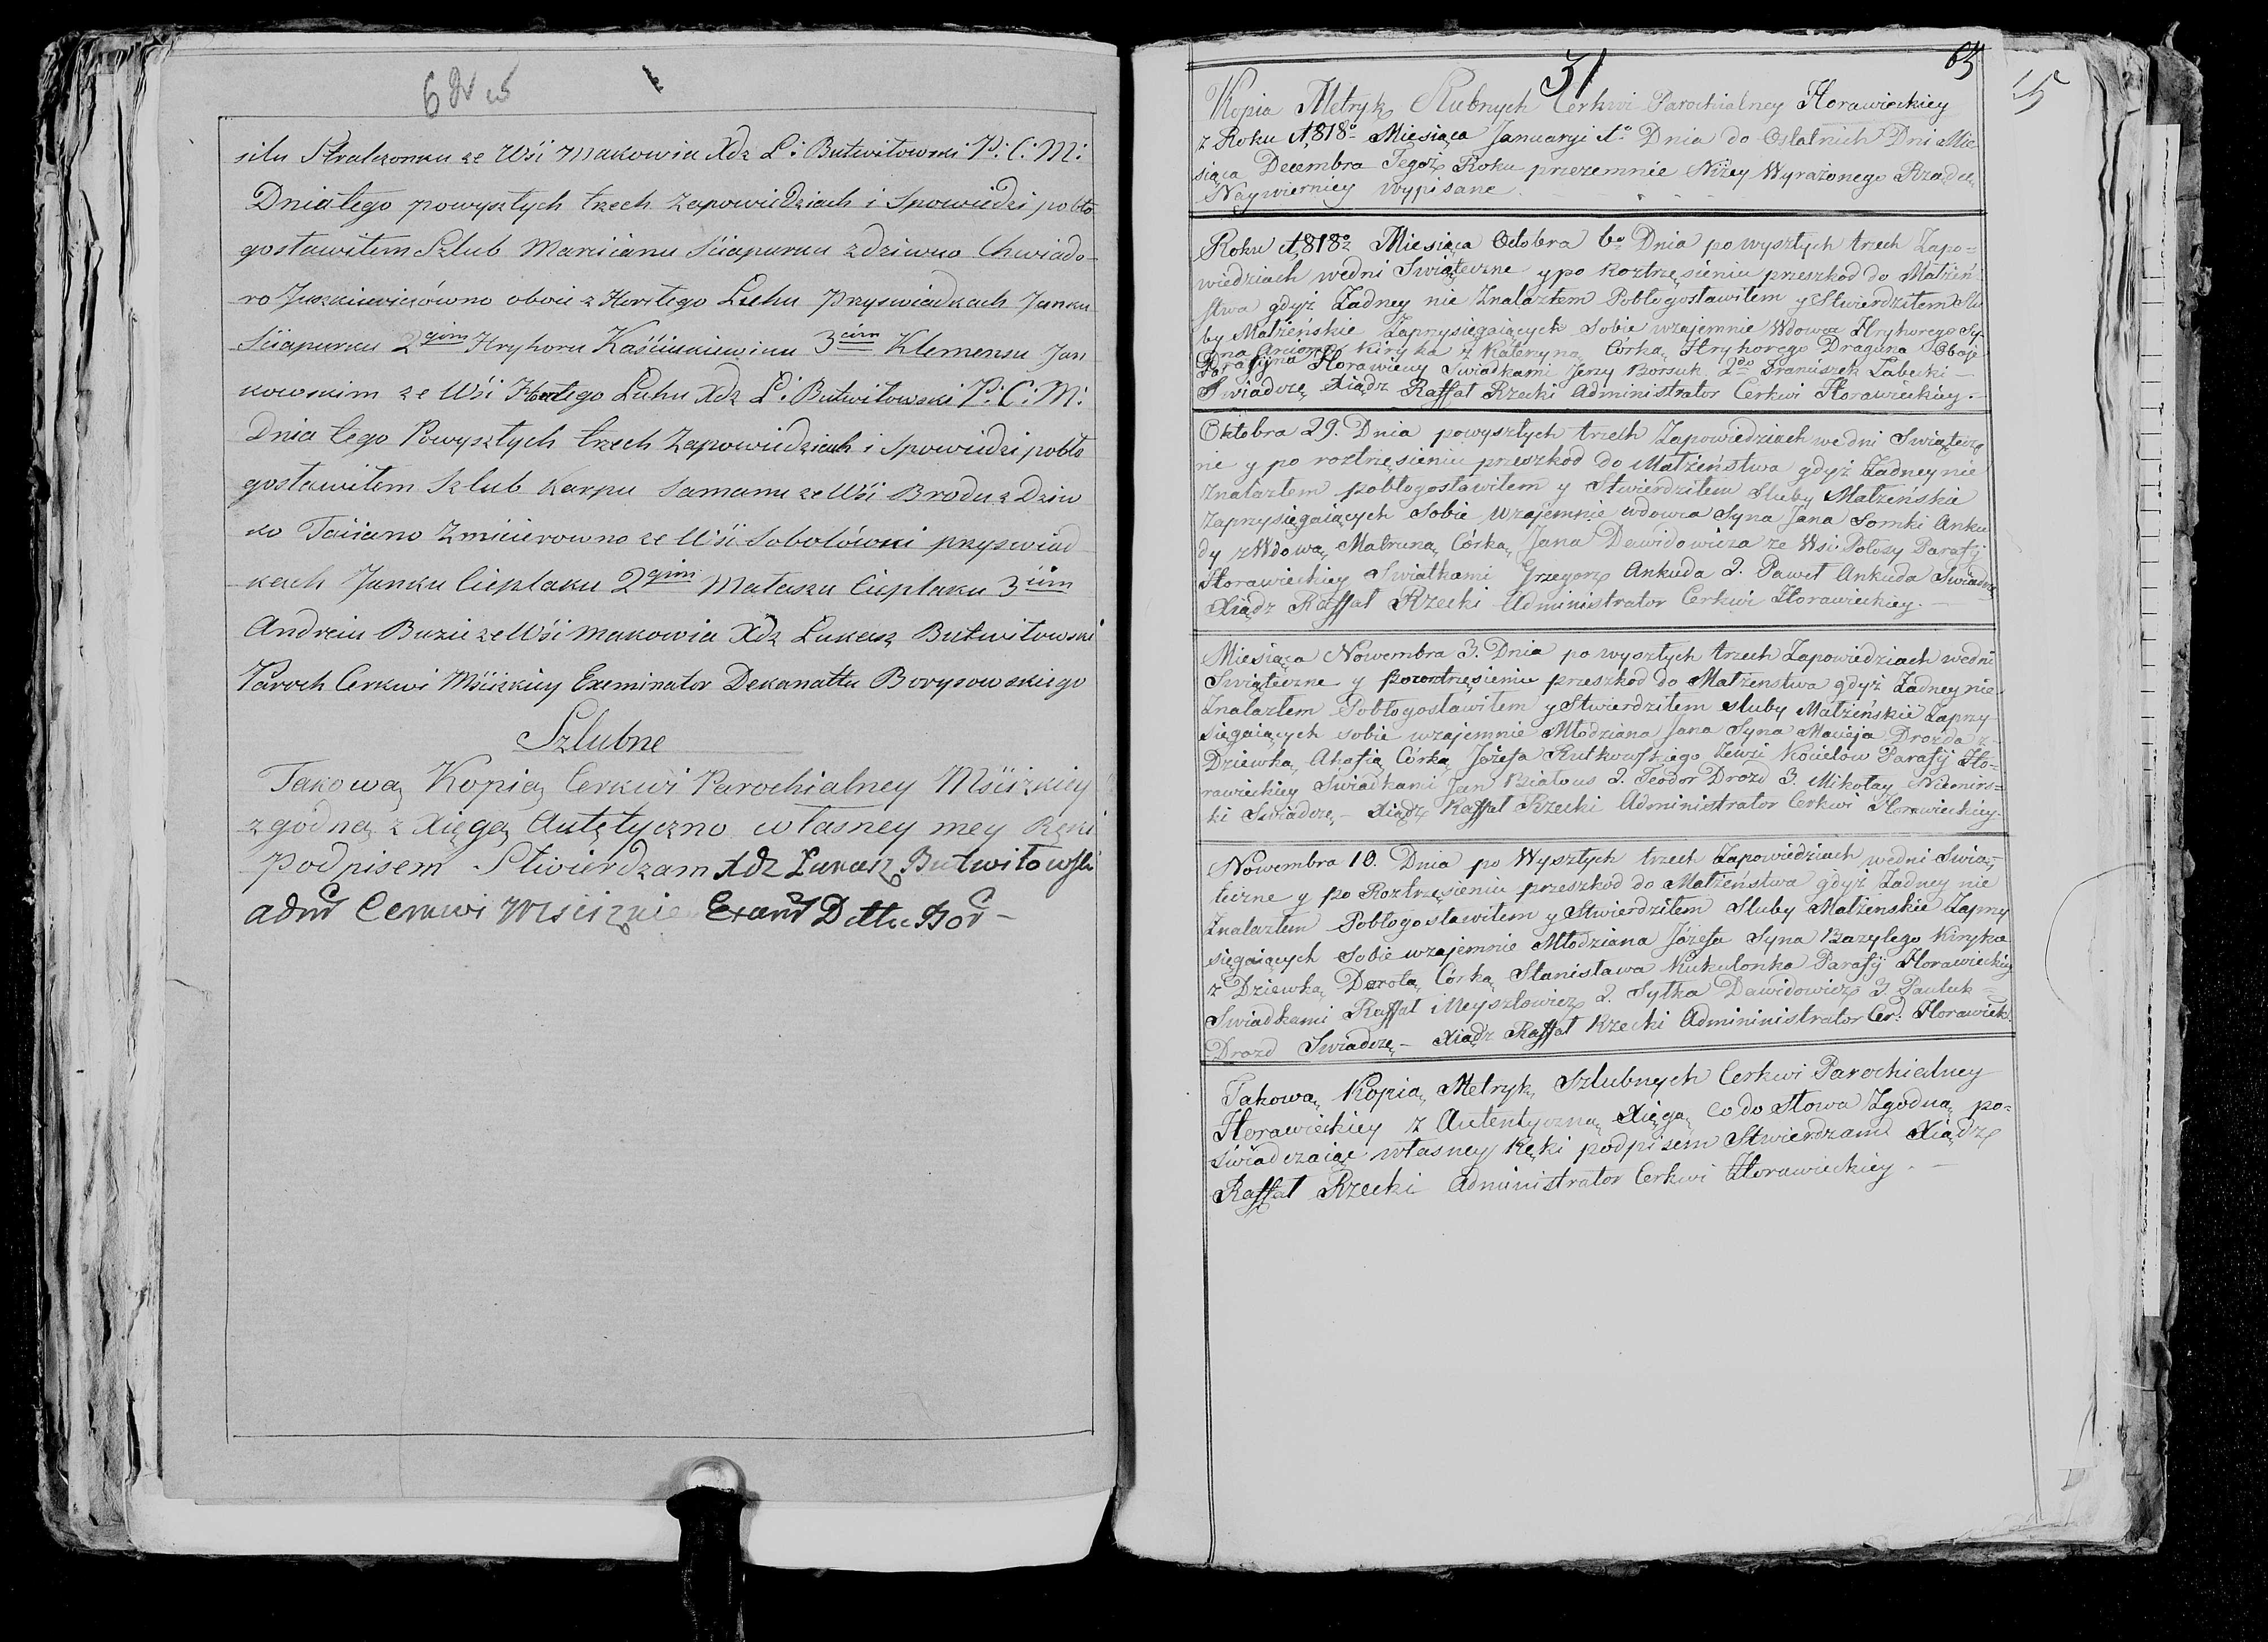 silu Stralczonku ze Wśi Makowia Xdz Ł: Butwiłowski P: C: M:
Dnia tego powyszłych trzech Zapowiedziach i Spowiedzi pobło
gosławiłem Szlub Marcianu Sciapuru z dziwko Chwiado-
ro Juszkiewiczówno oboie z Horełego Łuhu Przyswiadkach Janku
Sciapuru 2gim Hryhoru Kaściukiewiczu 3cim Klemensu Jan
kowskim ze Wśi Horełego Łuhu Xdz Ł: Butwiłowski P: C: M:
Dnia tego Powyszłych trzech Zapowiedziach i Spowiedzi pobło
gosławiłem Szlub Karpu Samanu ze Wśi Brodu z Dziw
ko Taciano Zmicierowno ze Wśi Sobolówki przyswiad
kach Janku Cieplaku 2gim Mataszu Cieplaku 3cim
Andreiu Buziu ze Wśi Makowia Xdz Łukasz Butwiłowski
Paroch Cerkwi Mściżkiey Exeminator Dekanattu Borysowskiego
Szlubne
Takową Kopią Cerkwi Parochialney Mściżkiey
zgodną z Xięgą Autętyczno własney mey Ręki
podpisem Stwierdzam Xdz Łukasz Butwiłowski
31
63
Kopia Metryk Slubnych Cerkwi Parochialney Horawieckiey
z Roku 1818o Miesiąca Januaryi 1o Dnia do Ostatnich Dni Mie
siąca Decembra Tegoż Roku przezemnie Niżey Wyrażonego Rządcę
Naywierniey wypisane
Roku 1818o Miesiąca Octobra 6o Dnia po wyszłych trzech Zapo=
wiedziach wedni Swiąteczne y po Roztrzęsieniu przeszkod do Małżeń
stwa gdyż Żadney nie Znalazłem Pobłogosławiłem y Stwierdziłem Slu
by Małżeńskie Zaprzysięgaiących Sobie wzajemnie Wdowca Hryhorego Sy
na Arciona Kiryka z Kateryną Córką Hryhorego Draguna Oboje
Parafyna Horawiecy Swiadkami Jerzy Borsuk 2do Franciszek Łabecki —
Swiadczę Xiądz Raffał Rzecki Administrator Cerkwi Horawieckiey.—
Oktobra 29. Dnia powyszłych trzech Zapowiedziach wedni Swiątecz
ne y po roztrzęsieniu przeszkod do Małżeństwa gdyż Żadney nie
Znalazłem pobłogosławiłem y Stwierdziłem Sluby Małżeńskie
Zaprzysięgaiących Sobie Wzajemnie wdowca Syna Jana Somki Anku
dy z Wdową Matruną Córką Jana Dawidowicza ze Wsi Połosy Parafij
Horawieckiey Swiatkami Grzegorz Ankuda 2. Paweł Ankuda Swiadczę
Xiądz Raffał Rzecki Administrator Cerkwi Horawieckiey.—
Miesiąca Nowembra 3. Dnia po wyszłych trzech Zapowiedziach wedni
Swiąteczne y poroztrzęsieniu przeszkod do Małżenstwa gdyż Żadney nie
Znalazłem Pobłogosławiłem y Stwierdziłem sluby Małżeńskie Zaprzy
sięgaiących sobie wzajemnie Młodziana Jana Syna Macieja Drozda z
Dziewką Ahafią Córką Józefa Rutkowskiego Zewsi Kociełow Parafij Ho-
rawieckiey Swiadkami Jan Białous 2. Teodor Drozd 3. Mikołay Niemirs=
ki Swiadczę — Xiądz Raffał Rzecki Administrator Cerkwi Horawieckiey.
Nowembra 10. Dnia po Wyszłych trzech Zapowiedziach wedni Swią-
teczne y po Roztrzęsieniu przeszkod do Małżeństwa gdyż Żadney nie
Znalazłem Pobłogosławiłem y Stwierdziłem Sluby Małżenskie Zaprzy
sięgaiących Sobie wzajemnie Młodziana Józefa Syna Bazylego Kiryka
z Dziewką Dorotą Córką Stanisława Kukulonka Parafij Horawieckiey
Swiadkami Raffał Meyszłowicz 2. Sylka Dawidowicz 3 Pauluk =
Drozd Swiadczę — Xiądz Raffał Rzecki Admininistrator Cer: Horawieck.
Takową Kopią Metryk Szlubnych Cerkwi Parochialney
Horawieckiey z Autentyczną Xięgą Co do Słowa Zgodną po=
swiadczaiąc własney Ręki podpisem Stwierdzam Xiądz
Raffał Rzecki Administrator Cerkwi Horawieckiey.—